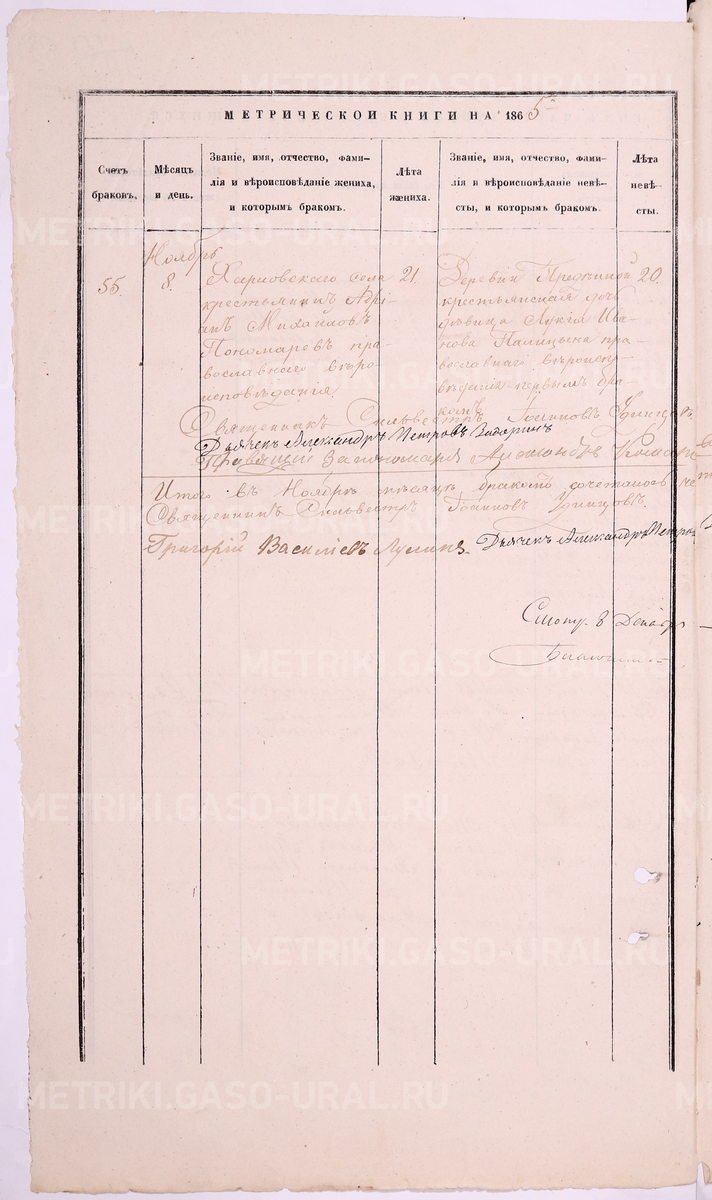 МЕТРИЧЕСКОЙ КНИГИ НА 1865
Счетъ браковъ.
Мѣсяцъ и день.
Званіе, имя, отчество, фами-
лія и вѣроисповѣданіе жениха,
и которымъ бракомъ.
Лѣта жениха.
Званіе, имя, отчество, фами-
лія и вѣроисповѣданіе невѣ-
сты, и которымъ бракомъ.
Лѣта невѣ-
сты.
Ноябрь
55.
8.
Харловскаго села
крестьянинъ Адрі-
анъ Михайловъ
Пономаревъ пра-
вославнаго вѣро-
исповѣданія
21
Деревни
крестьянская дочь
дѣвица Лукія Ива-
нова Палицына пра-
вославнаго вѣроиспо-
вѣданія первымъ бра-
комъ
20.
Священникъ Сильвестръ Іоанновъ
Дьячекъ Александръ Петровъ
Правящій за пономаря Александръ
Итого въ Ноябрѣ мѣсяцѣ бракомъ сочеталось
Священникъ Сильвестръ Іоанновъ
Григорій Василіевъ
Дьячекъ Александръ Петров
8
METRIKI.GASO-URAL.RU